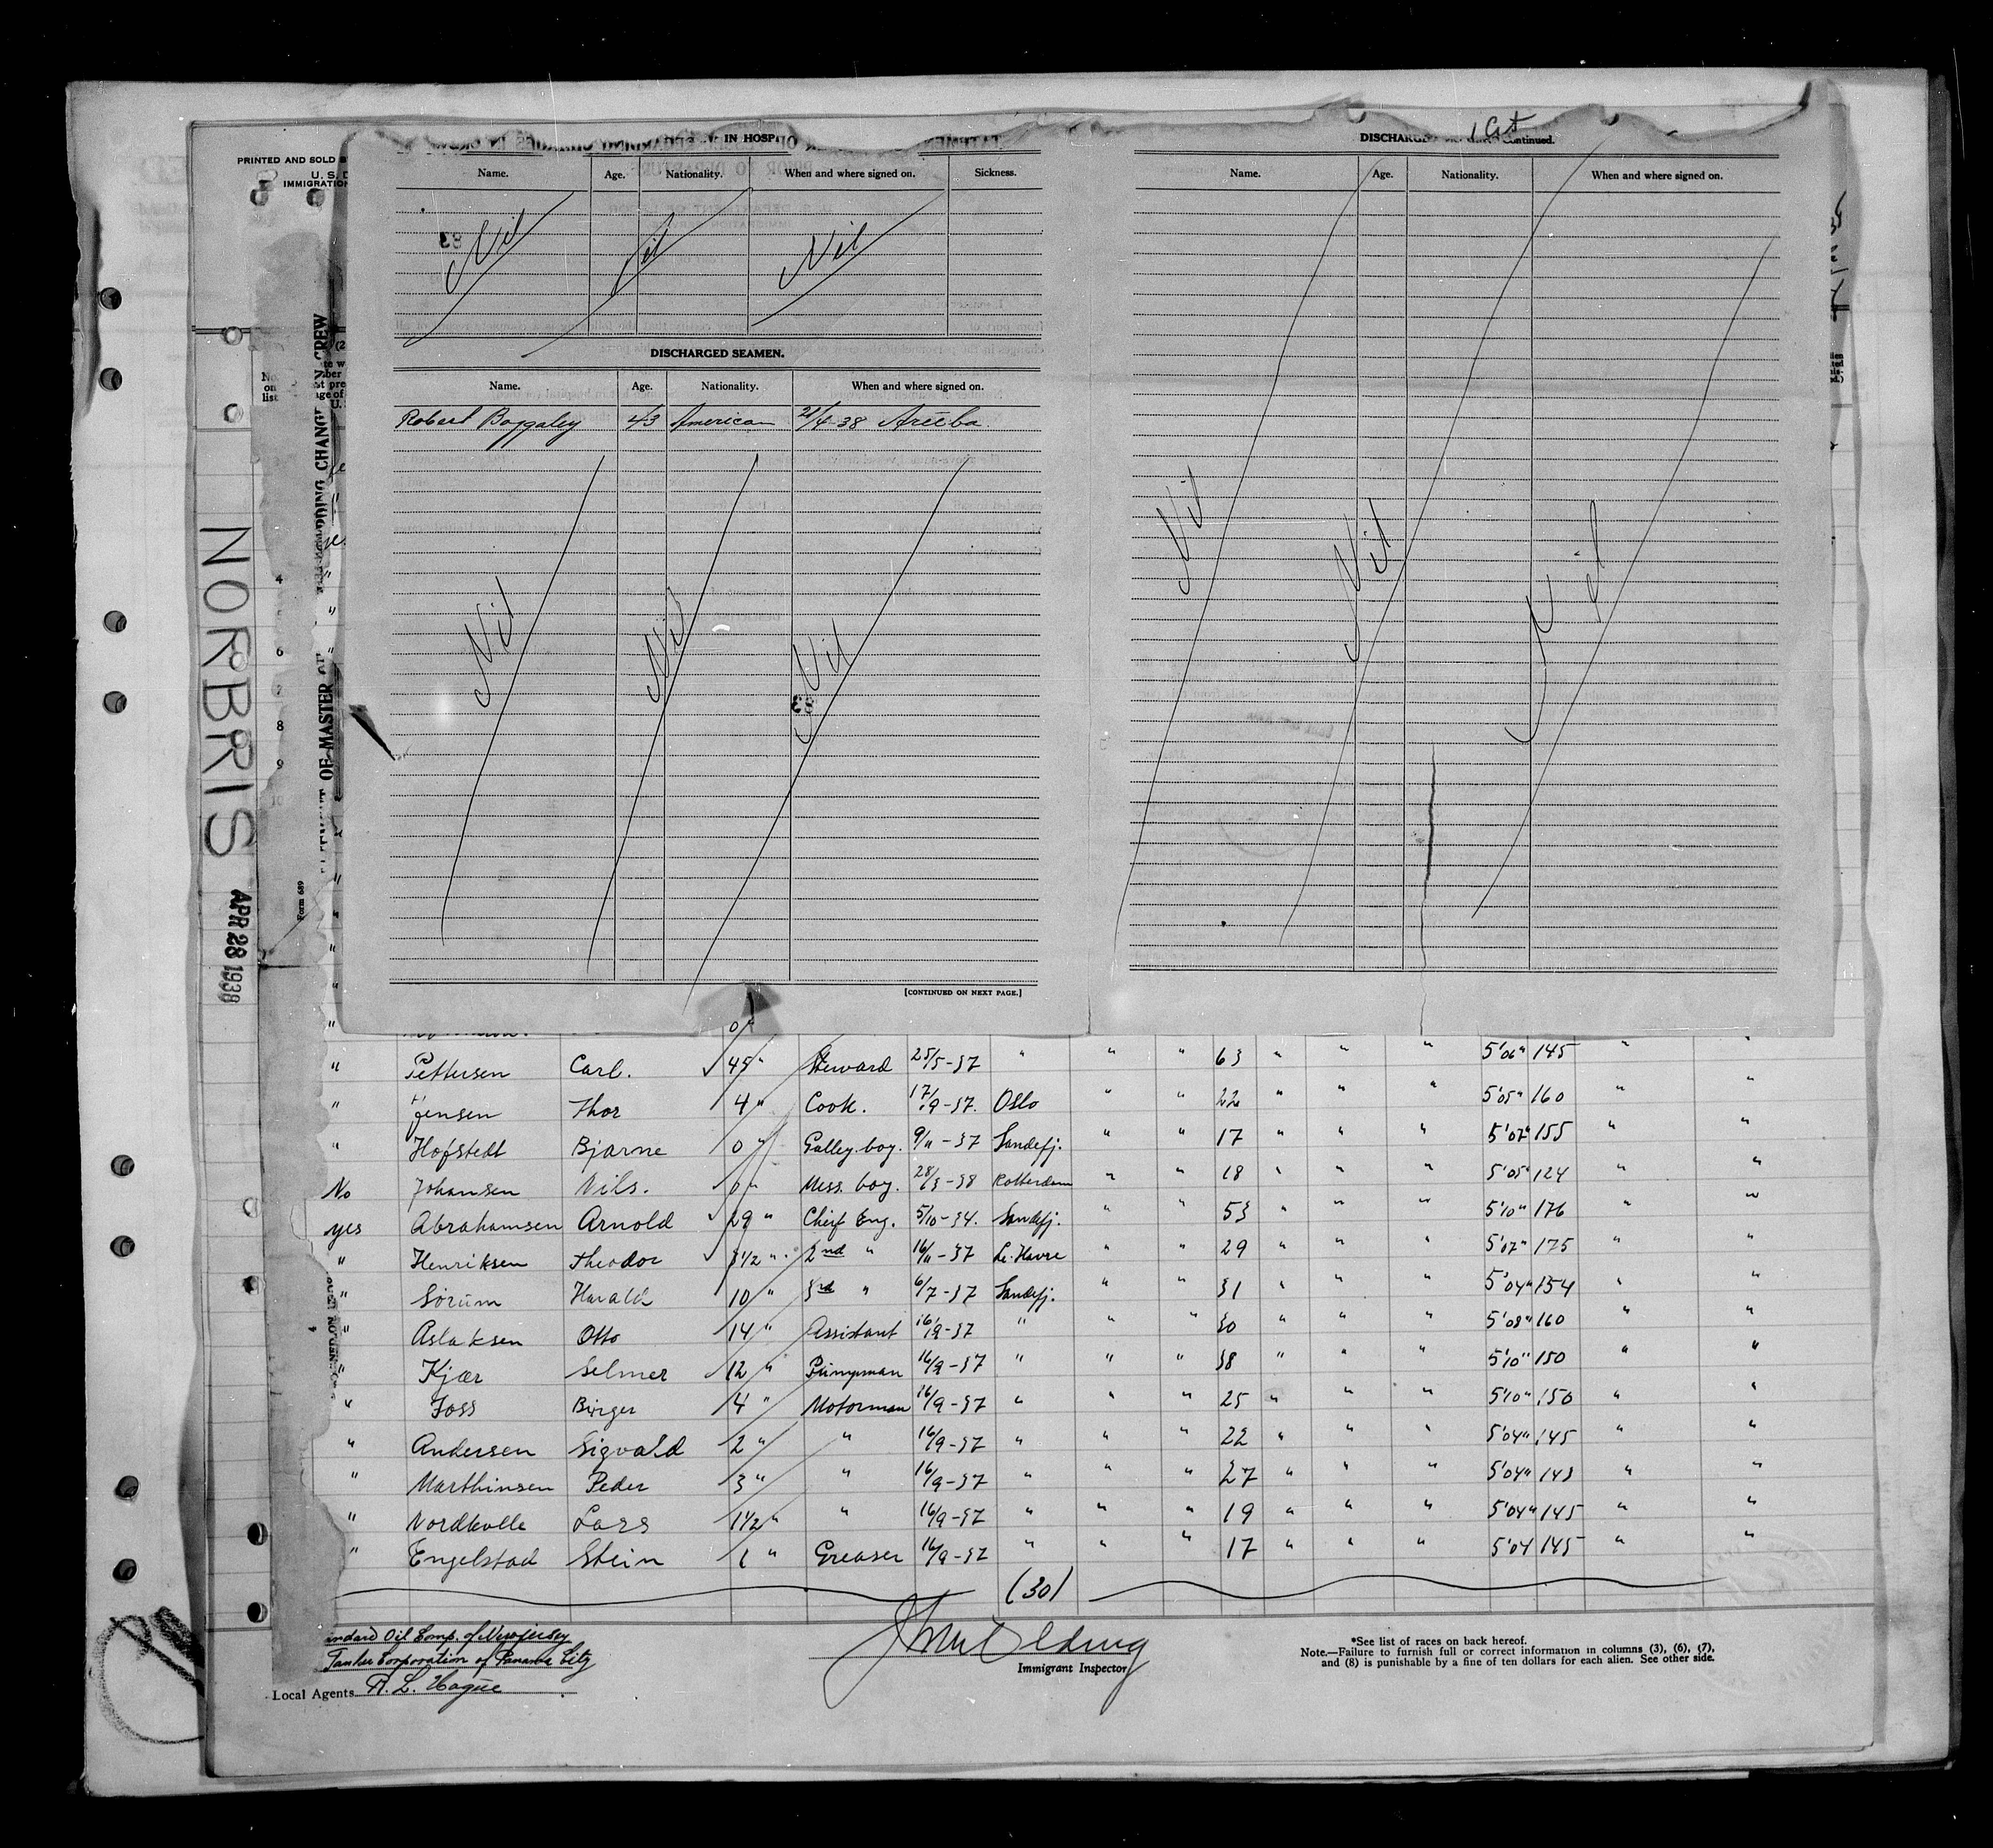 PRINTED AND SOLD
IMMIGRATION
No.
on
list
NORBRIS
APR 28 1938
Form 689
OF MASTER
CHANGES IN CREW
IN HOSP
Name. Age. Nationality. When and where signed on. Sickness.
Nil Nil Nil
83
DISCHARGED SEAMEN.
Name. Age. Nationality. When and where signed on.
Robert Baggaley 43 American 21/4-38 Aruba.
Nil Nil Nil
83
[CONTINUED ON NEXT PAGE.]
Continued.
Name. Age. Nationality. When and where signed on.
Nil Nil Nil
4
6
7
8
9
10
" Pettersen Carl. 45 " Steward 25/5-37 " " " 63 " " " 5'06" 145 " "
" Jensen Thor 4 " Cook. 17/9-37. Oslo " " 22 " " " 5'05" 160 " "
" Hofstedt Bjarne 0 " Galley boy. 9/11-37 Sandefj. " " 17 " " " 5'07" 155 " "
No Johansen Nils. 0 " Mess. boy. 28/3-38 Rotterdam " " 18 " " " 5'05" 124 " "
yes Abrahamsen Arnold 29 " Chief Eng. 5/10-34. Sandefj. " " 53 " " " 5'10" 176 " "
" Henriksen Theodor 3 1/2 " 2nd " 16/11-37 Le. Havre " " 29 " " " 5'07" 175 " "
" Sørum Harald 10 " 3rd " 6/7-37 Sandefj. " " 31 " " " 5'04" 154 " "
" Aslaksen Otto 14 " Assistant 16/9-37 " " " 30 " " " 5'08" 160 " "
" Kjær Selmer 12 " Pumpman 16/9-37 " " " 38 " " " 5'10" 150 " "
" Foss Birger 4 " Motorman 16/9-37 " " " 25 " " " 5'10" 150 " "
" Andersen Sigvald 2 " " 16/9-37 " " " 22 " " " 5'04" 145 " "
" Marthinsen Peder 3 " " 16/9-37 " " " 27 " " " 5'04" 143 " "
" Nordkvelle Lars 1 1/2 " " 16/9-37 " " " 19 " " " 5'04" 145 " "
" Engelstad Stein 1 " Greaser 16/9-37 " " " 17 " " " 5'04 145 " "
(30)
Oil Comp. of New Jersey
Tanker Corporation of Panama City
Local Agents R. L. Hague
Immigrant Inspector
*See list of races on back hereof.
Note.—Failure to furnish full or correct information in columns (3), (6), (7),
and (8) is punishable by a fine of ten dollars for each alien. See other side.